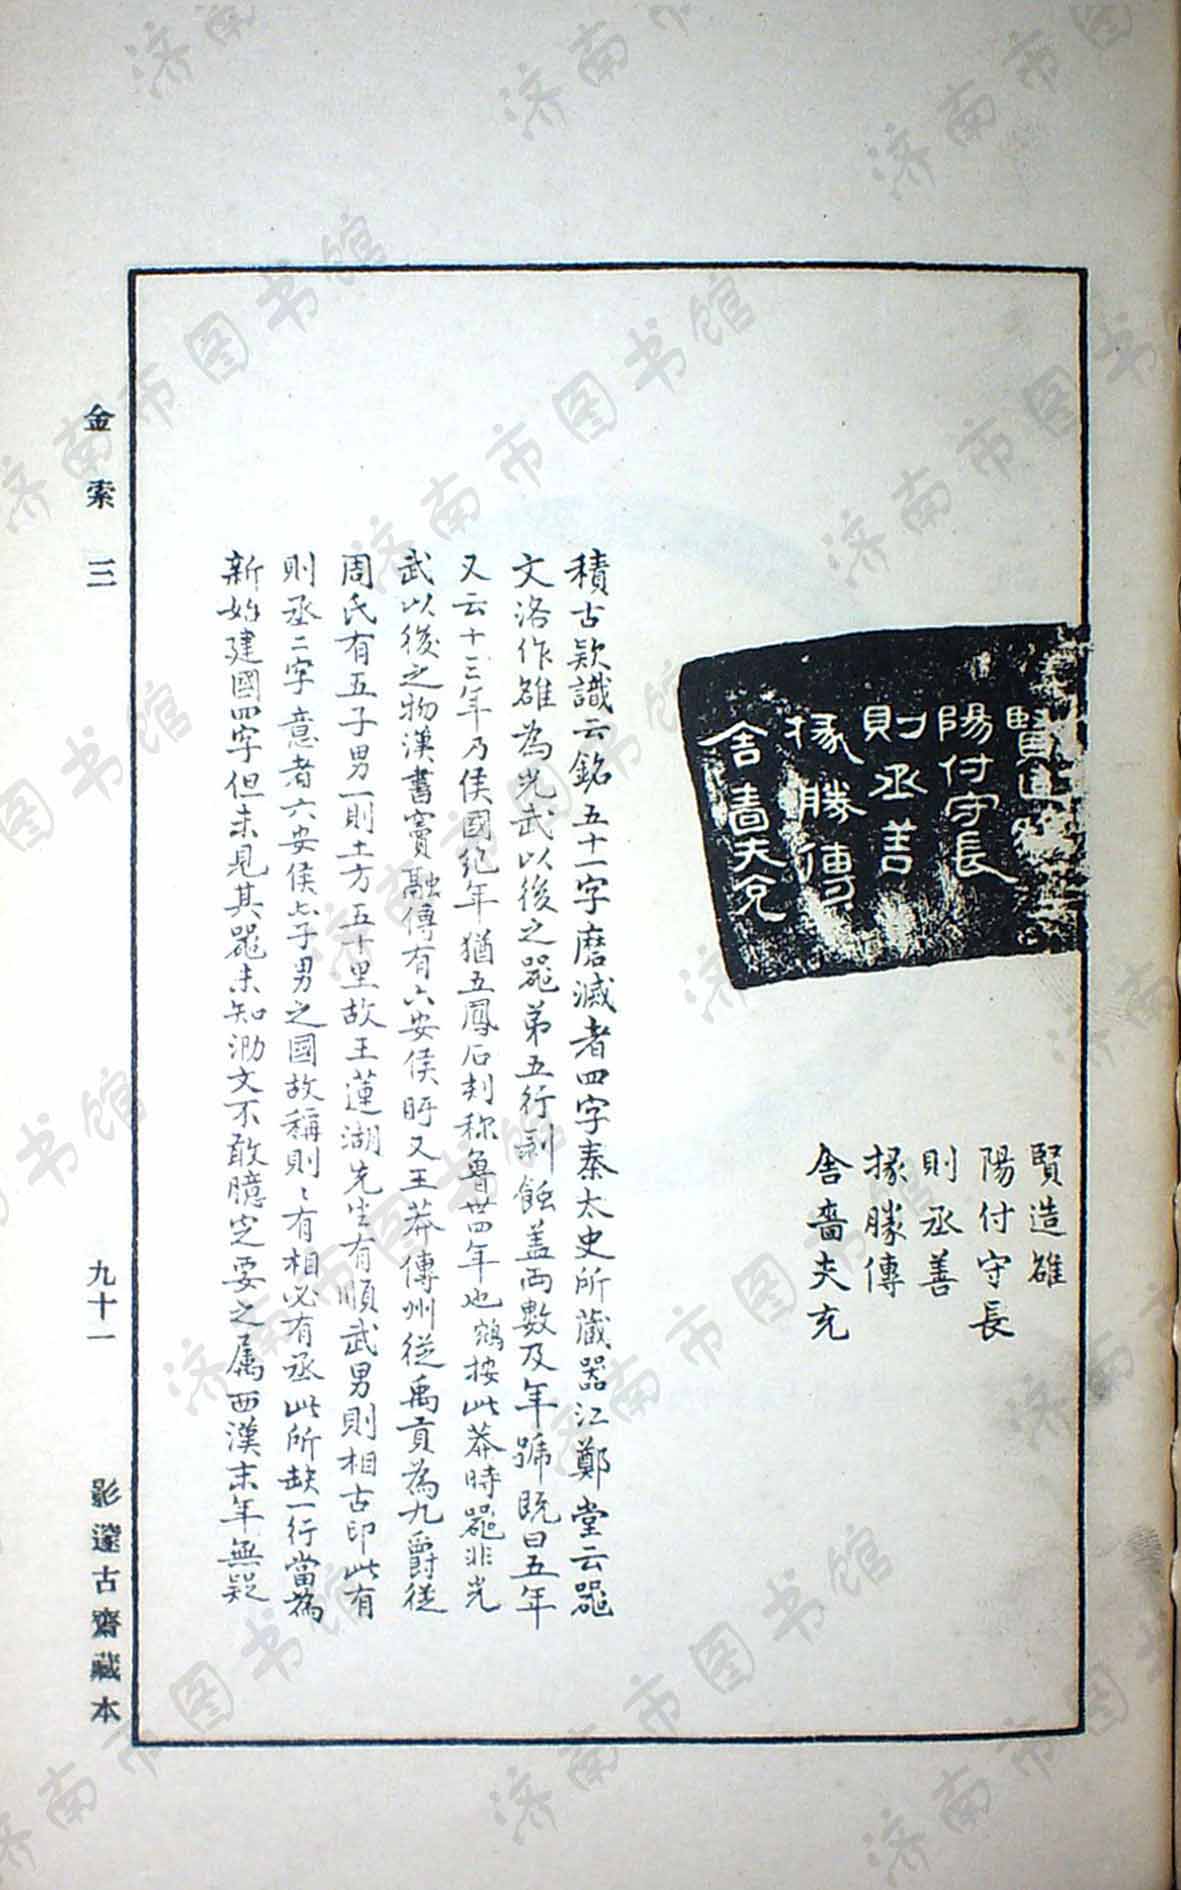 賢造雒
陽付守長
則丞善
掾勝傳
舍嗇夫充
賢造雒
陽付守長
則丞善
掾勝傳
舍嗇夫充
積古欵識云銘五十一字磨滅者四字秦太史所藏器江鄭堂云器
文洛作雒為光武以後之器第五行剝蝕盖兩數及年號既曰五年
又云十三年乃侯國紀年猶五鳳石刻称魯丗四年也鵷按此莽時器非光
武以後之物漢書竇融傳有六安侯盱又王莽傳州從禹貢為九爵從
周氏有五子男一則土方五十里故王蓮湖先生有順武男則相古印此有
則丞二字意者六安侯亦子男之國故稱則〻有相必有丞此所缺一行當為
新始建國四字但未見其器未知泐文不敢臆定要之属西漢末年無疑
金索 三
九十一
影邃古齋藏本
济南市图书馆